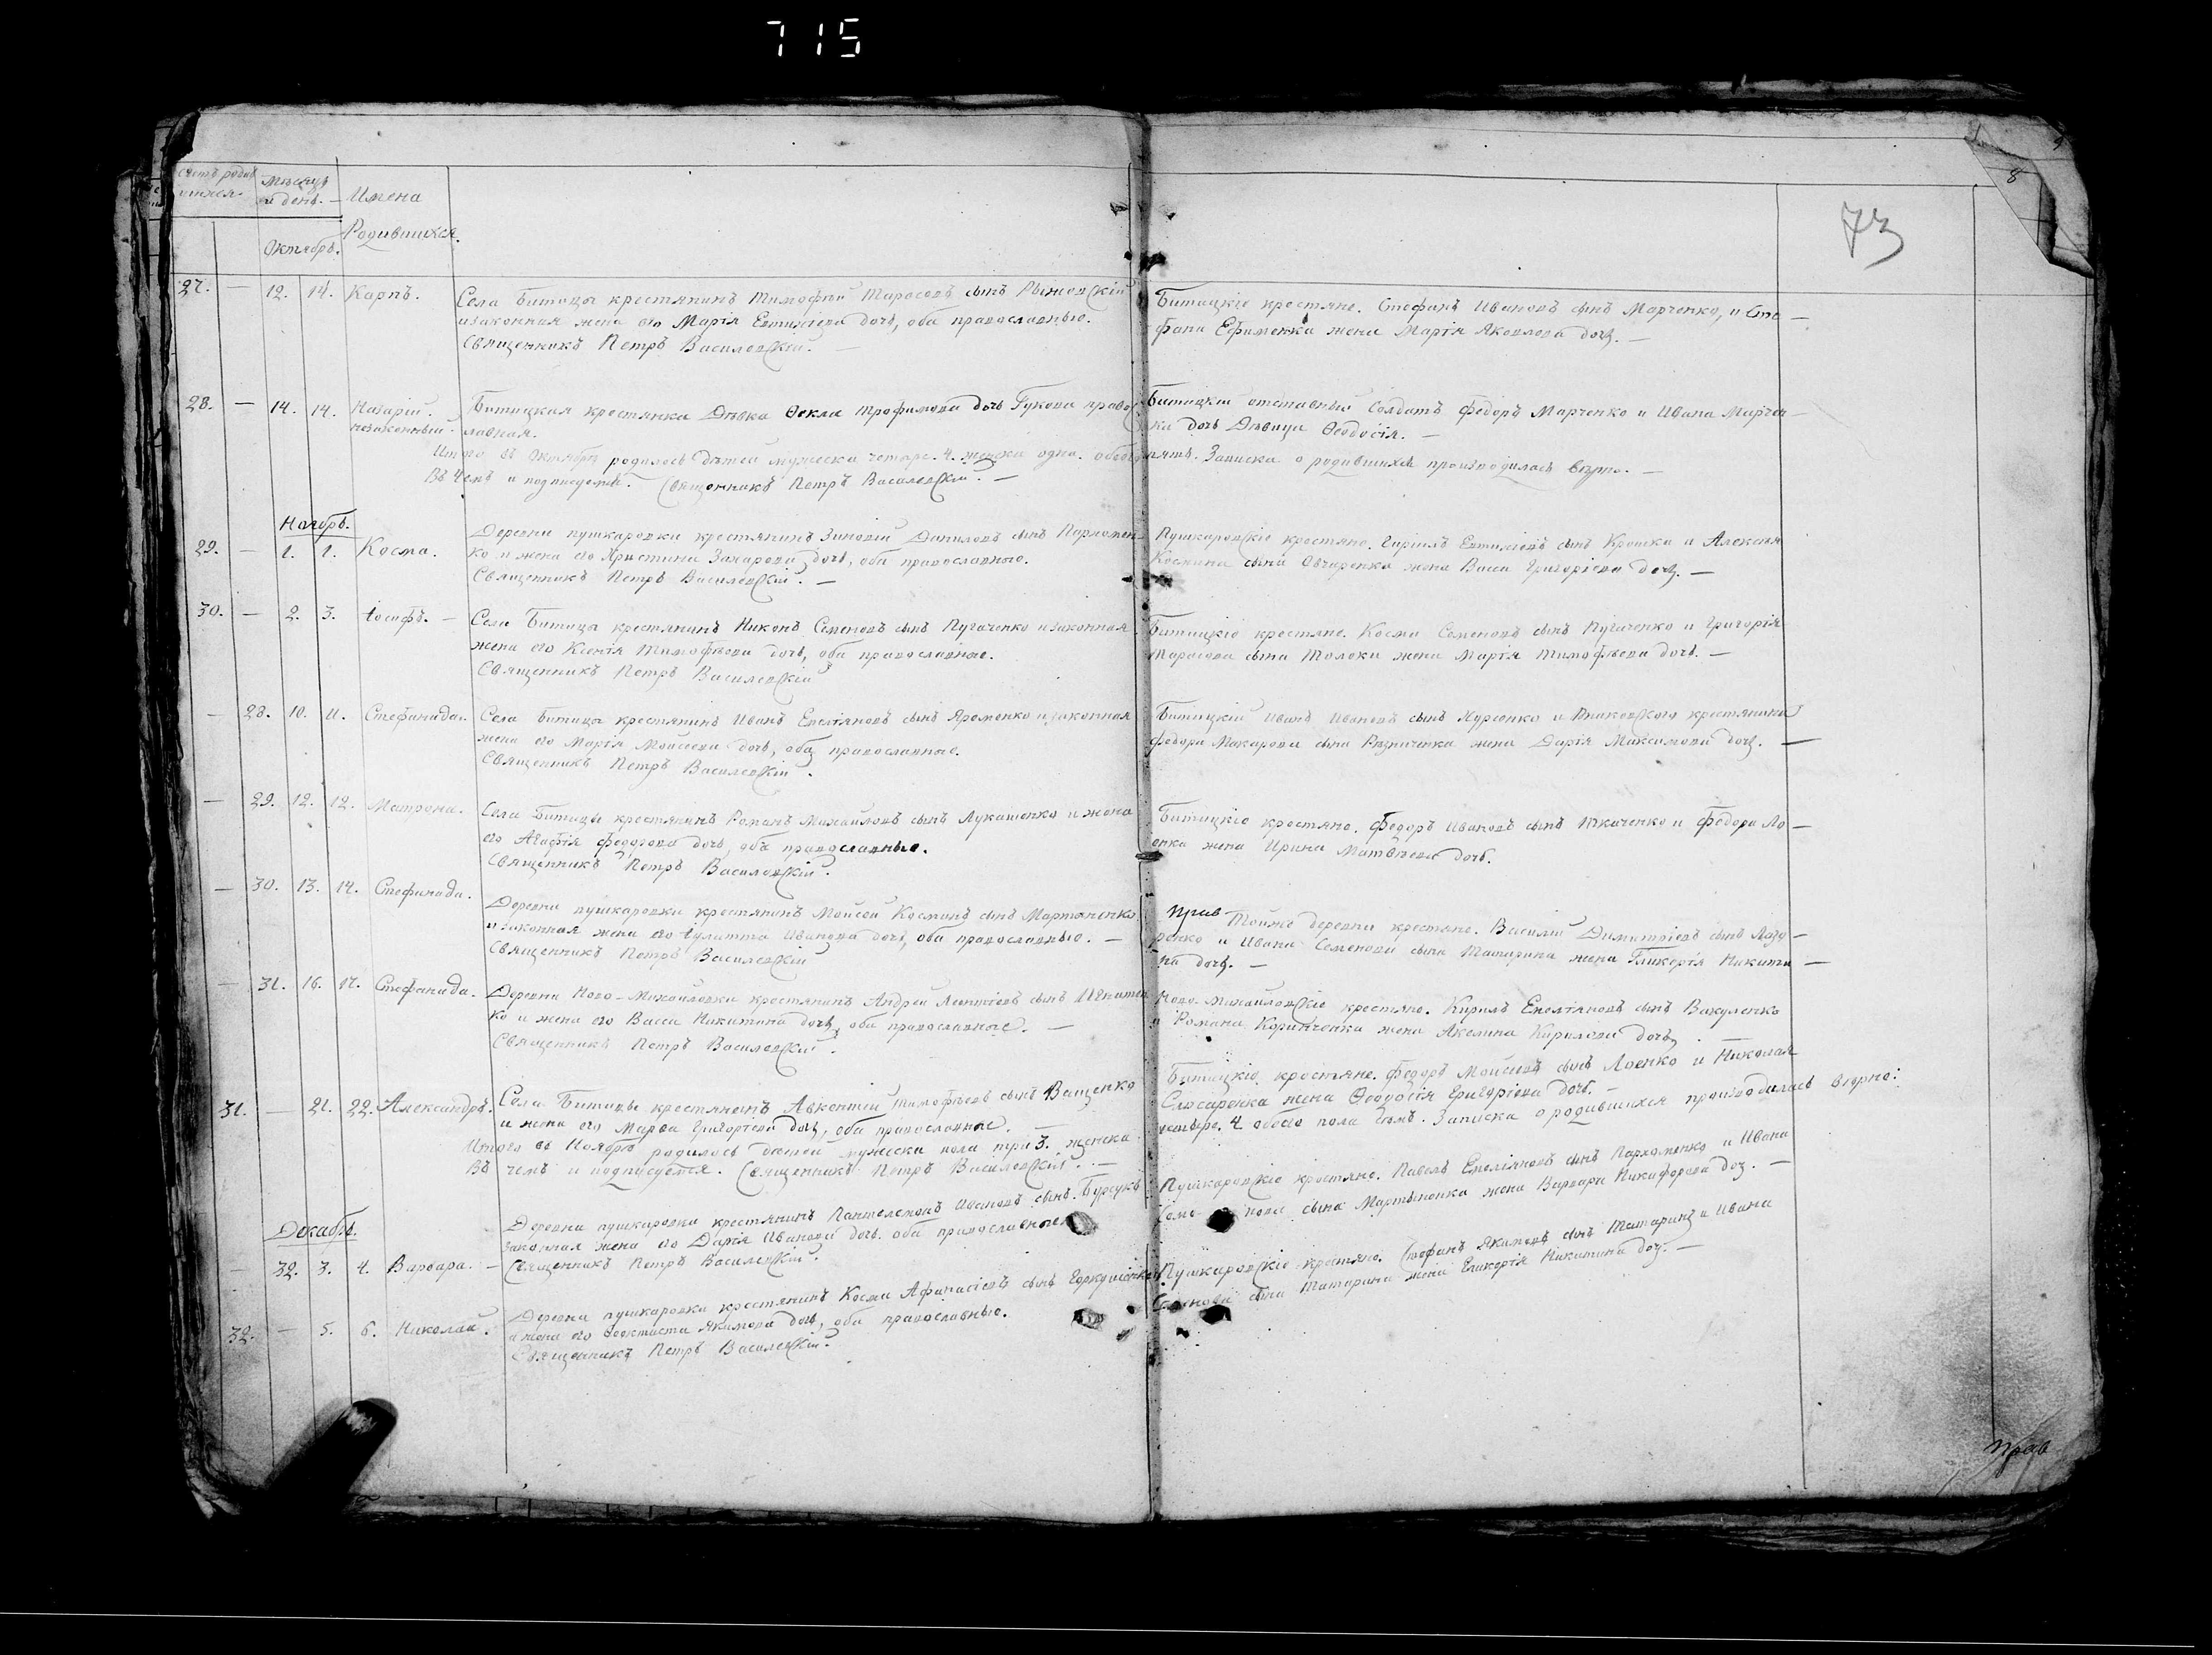 715
73
8
Счетъ родив
шихся.
Мѣсяцъ
и день.
Имена
Родившихся.
Октябрь.
27. — 12. 14. Карпъ.
Села Битицы крестьянинъ Тимофѣй Тарасовъ сынъ Рыжовскій
и законная жена его Марія Евтихіева дочь, оба православные.
Священникъ Петръ Василевскій. —
Битицкіе крестьяне. Стефанъ Ивановъ сынъ Марченко, и Сте —
фана Ефименка жена Марія Яковлева дочь. —
28. — 14. 14. Назарій.
незаконный.
Битицкая крестьянка Дѣвка Ѳекла Трофимова дочь Гукова правос
лавная.
Битицкій отставный Солдатъ Федоръ Марченко и Ивана Марчен —
ка дочь Дѣвица Ѳеодосія. —
Итого въ Октябрѣ родилось дѣтей мужеска четыре. 4. женска одна. обоего пять. Записка о родившихся производилась вѣрно. —
Въ чемъ и подписуемся. Священникъ Петръ Василевскій. —
Ноябрь.
29. — 1. 1. Косма.
Деревни пушкаровки крестьянинъ Зиновій Даниловъ сынъ Пархомен
ко и жена его Христина Захарова дочь, оба православные.
Священникъ Петръ Василевскій. —
Пушкаровскіе крестьяне. Гаріилъ Евтихіевъ сынъ Крошка и Алексія
Космина сына Овчаренка жена Васса Григоріева дочь. —
30. — 2. 3. Іосифъ. —
Села Битицы крестьянинъ Никонъ Семеновъ сынъ Пугаченко и законная
жена его Ксенія Тимофѣева дочь, оба православные.
Священникъ Петръ Василевскій
Битицкіе крестьяне. Косма Семеновъ сынъ Пугаченко и Григорія
Тарасова сына Толоки жена Марія Тимофѣева дочь. —
— 28. 10. 11. Стефанида.
Села Битицы крестьянинъ Иванъ Емеліяновъ сынъ Яременко и законная
жена его Марія Мойсеева дочь, оба православные.
Священникъ Петръ Василевскій.
Битицкій Иванъ Ивановъ сынъ Курсенко и крестьянина
Федора Макарова сына Рѣзниченка жена Дарія Максимова дочь. —
— 29. 12. 12. Матрона.
Села Битицы крестьянинъ Романъ Михайловъ сынъ Лукашенко и жена
его Агафія Федорова дочь, оба православные.
Священникъ Петръ Василевскій.
Битицкіе крестьяне. Федоръ Ивановъ сынъ Ткаченко и Федора Ло —
енка жена Ирина Матвѣева дочь.
— 30. 13. 14. Стефанида.
Деревни пушкаровки крестьянинъ Мойсей Косминъ сынъ Мартыненко
и законная жена его Іулитта Иванова дочь, оба православные. —
Священникъ Петръ Василевскій
Тойже деревни крестьяне. Василій Димитріевъ сынъ Лазо —
ренко и Ивана Семенова сына Татарина жена Гликерія Никити —
на дочь. —
— 31. 16. 17. Стефанида.
Деревни Ново-Михайловки крестьянинъ Андрей Леонтіевъ сынъ Игнатен
ко и жена его Васса Никитина дочь, оба православные. —
Священникъ Петръ Василевскій.
Ново-Михайловскіе крестьяне. Кирилъ Емеліяновъ сынъ Вакуленко
и Романа Коринченка жена Акелина Кирилова дочь.
31. — 21. 22. Александръ.
Села Битицы крестьянинъ Авксентій Тимофѣевъ сынъ Ващенко
и жена его Марѳа Григоріева дочь, оба православные. —
Битицкіе крестьяне. Федоръ Мойсеевъ сынъ Лоенко и Николая
Слюсаренка жена Ѳеодосія Григоріева дочь. —
Итого въ Ноябрѣ родилось дѣтей мужеска пола три 3. женска четыре. 4 обоего пола семь. Записка о родившихся производилась вѣрно:
Въ чемъ и подписуемся. Священникъ Петръ Василевскій. —
Декабрь.
— 32. 3. 4. Варвара. —
Деревни пушкаровки крестьянинъ Пантелемонъ Ивановъ сынъ Бурсукъ
законная жена его Дарія Иванова дочь. оба православные
Священникъ Петръ Василевскій.
Пушкаровскіе крестьяне. Павелъ Емеліяновъ сынъ Пархоменко и Ивана
сына Мартыненка жена Варвара Никифорова доч. —
32. — 5. 6. Николай.
Деревни пушкаровки крестьянинъ Косма Афанасіевъ сынъ
и жена его Ѳеоктиста Якимова дочь, оба православные.
Священникъ Петръ Василевскій.
Пушкаровскіе крестьяне. Стефанъ Якимовъ сынъ Татаринъ и Ивана
Семенова сына Татарина жена Гликерія Никитина доч. —